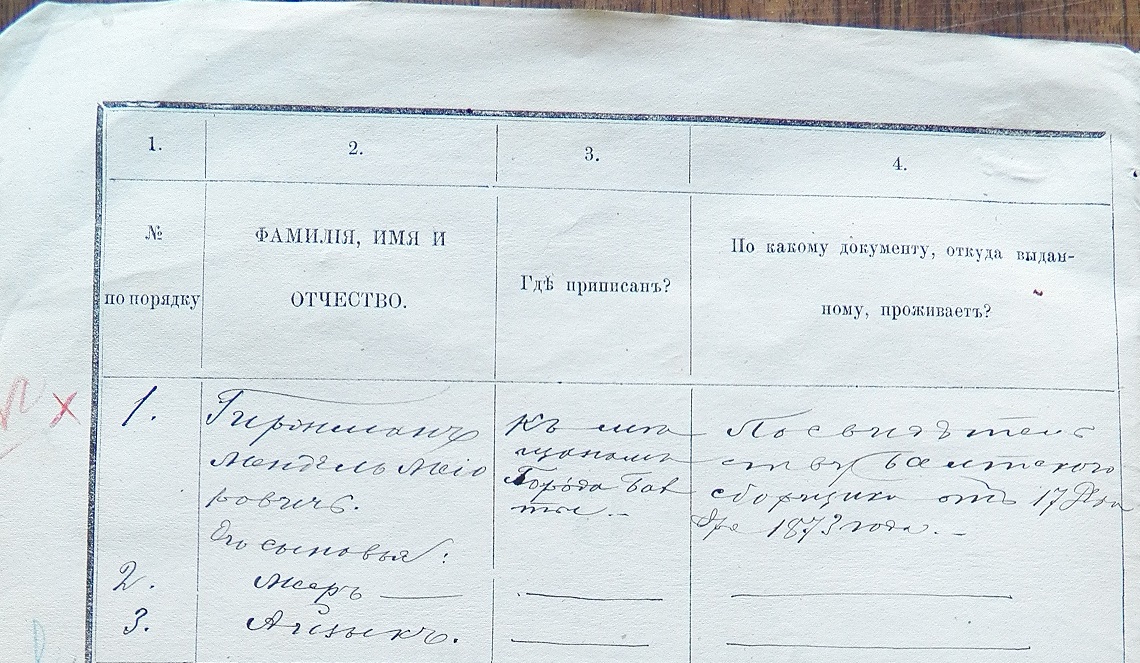 1.
2.
3.
4.
№
по порядку
ФАМИЛІЯ, ИМЯ И
ОТЧЕСТВО.
Гдѣ приписанъ?
По какому документу, откуда выдан-
ному, проживаетъ?
1.
Мендель Меіо
ровичъ.
Его сыновья:
Къ мѣ
щанамъ
Города Бал
ты.-
По свидѣтель
ству Балтского
сборщика отъ 17
1873 года.-
2.
Мееръ
3.
Айзыкъ.